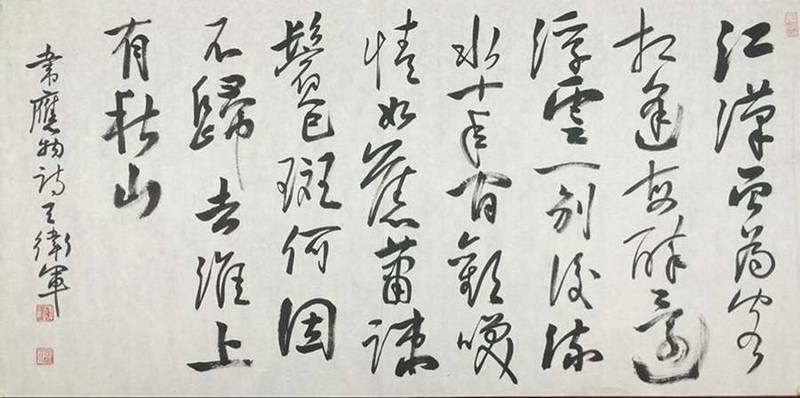 江漢曾為客
相逢每醉還
浮雲一別後流
水十年間歡笑
情如舊蕭疎
鬢已斑何因
不歸去淮上
有秋山
韋應物詩王衛軍